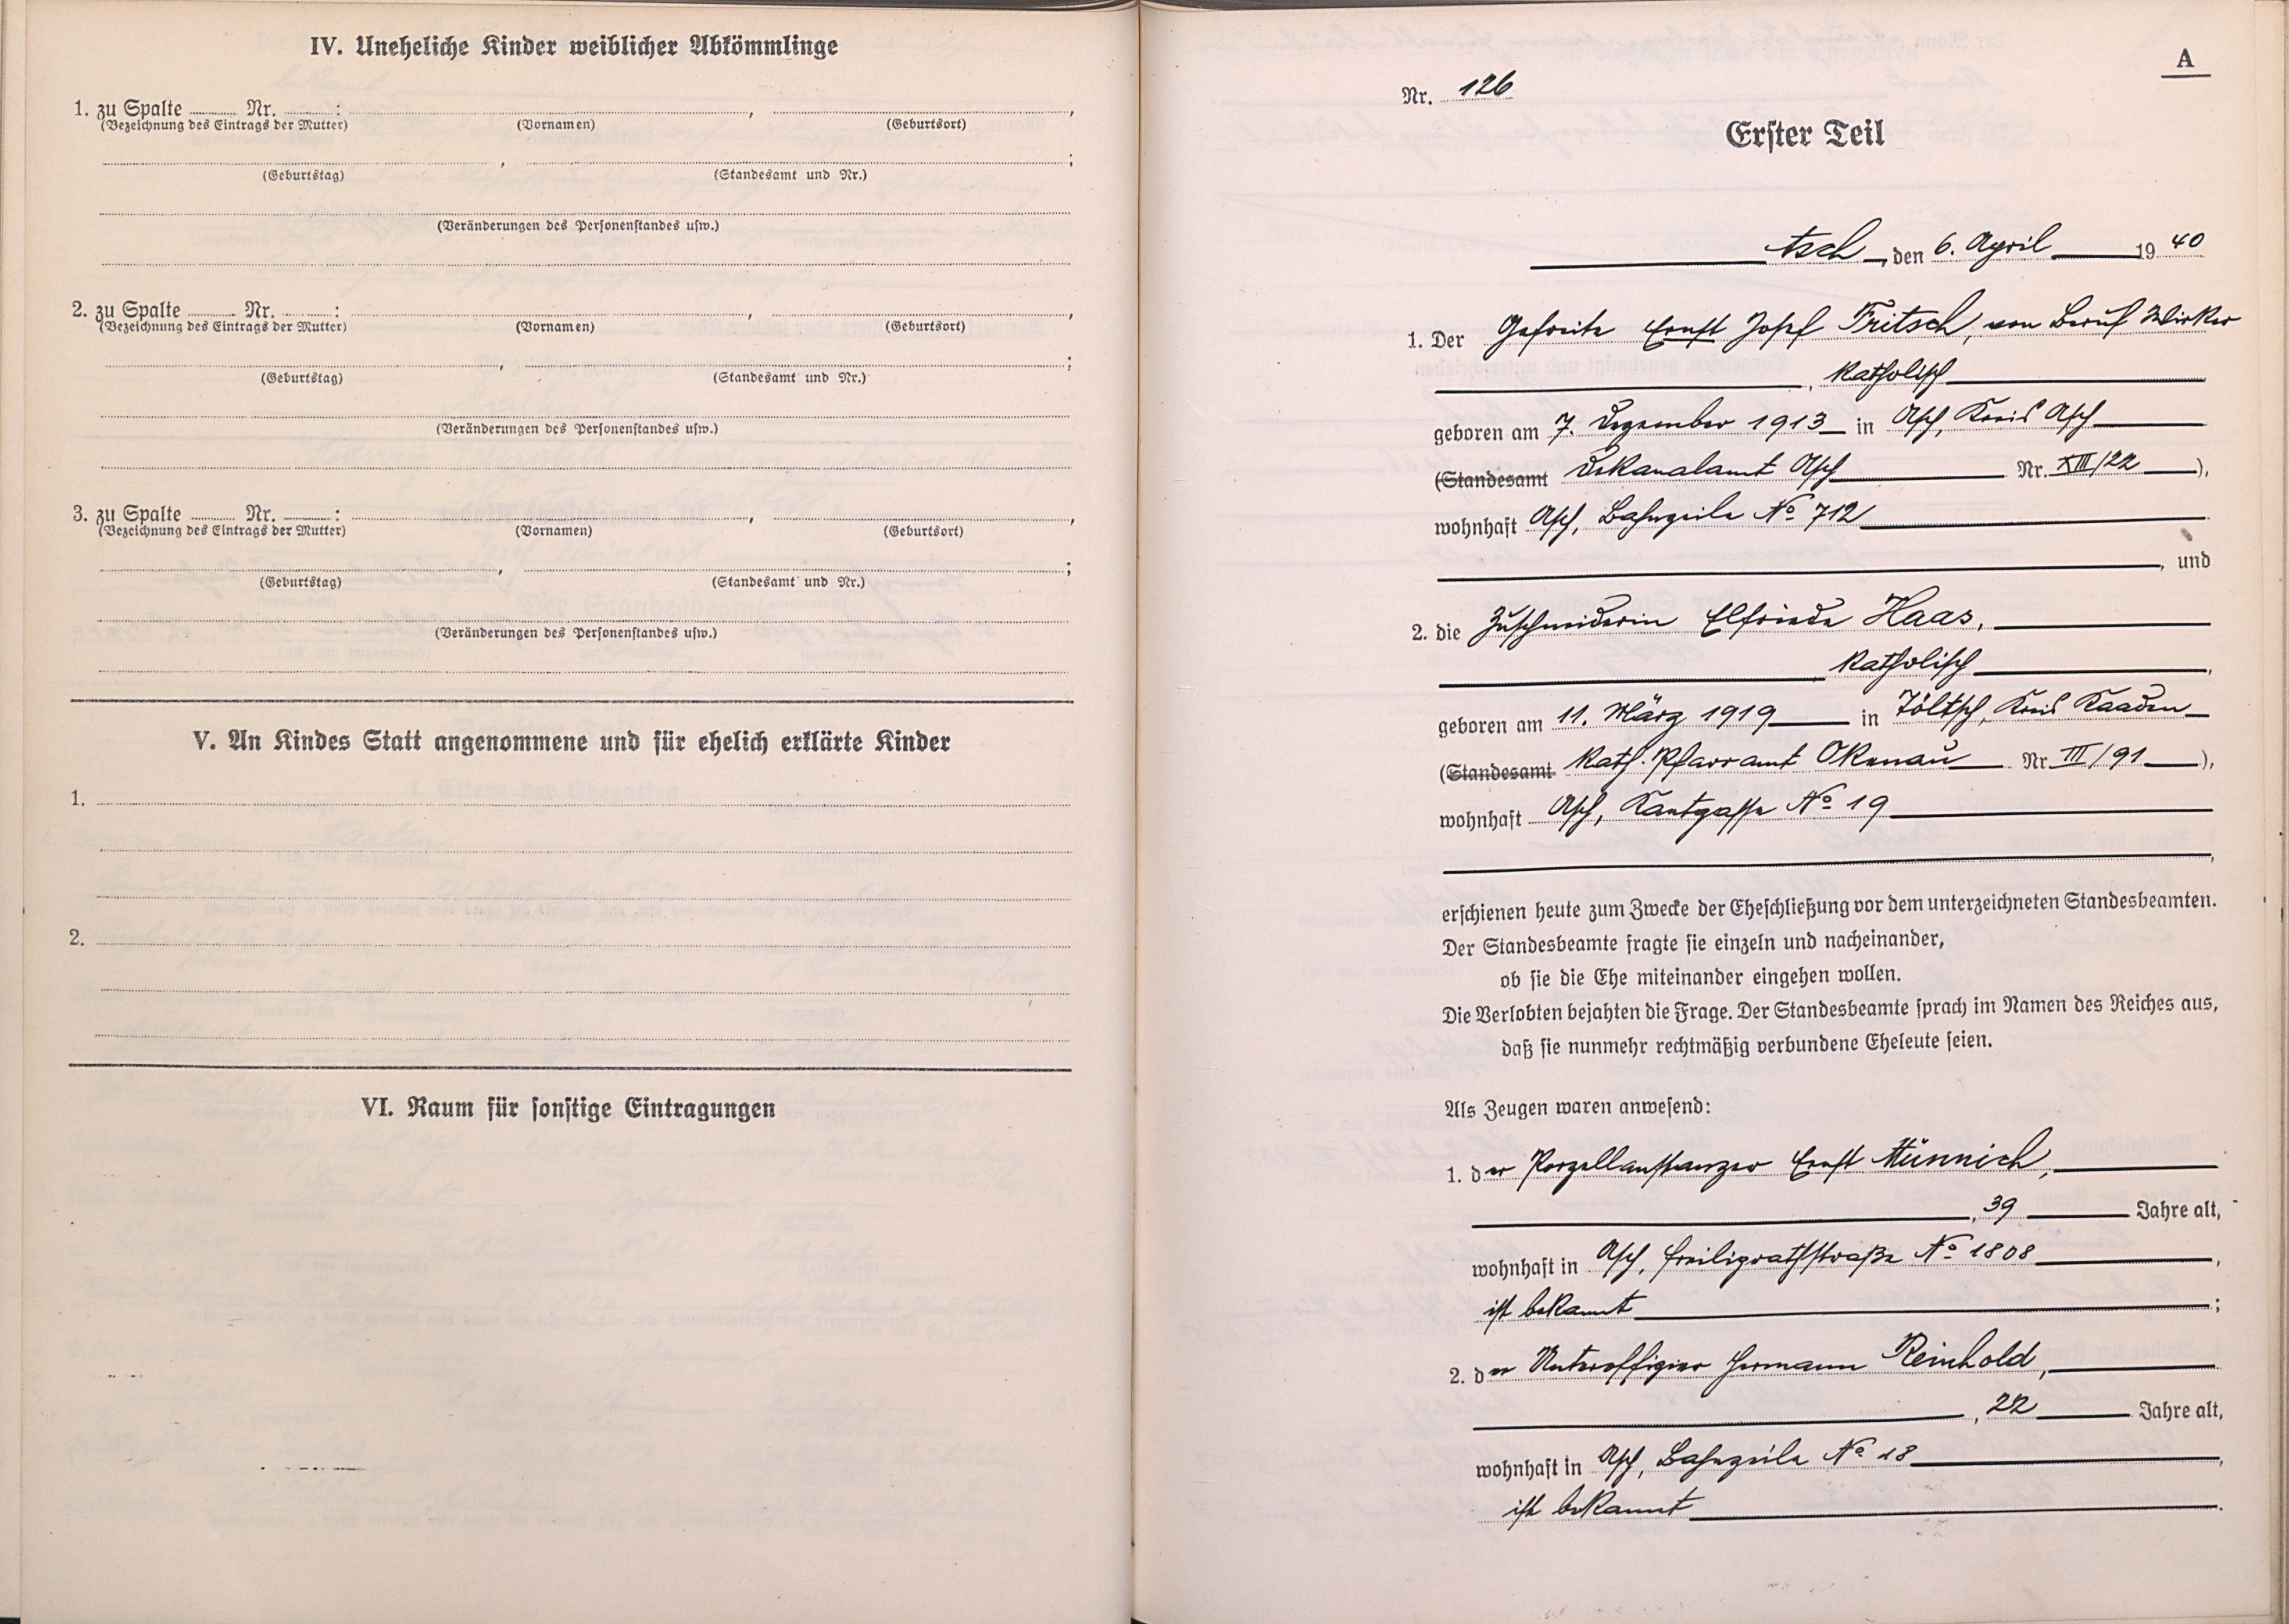 IV. Uneheliche Kinder weiblicher Abkömmlinge
1. zu Spalte ........ Nr. ........:
(Bezeichnung des Eintrags der Mutter) (Vornamen) (Geburtsort)
(Geburtstag) (Standesamt und Nr.)
(Veränderungen des Personenstandes usw.)
2. zu Spalte ........ Nr. ........:
(Bezeichnung des Eintrags der Mutter) (Vornamen) (Geburtsort)
(Geburtstag) (Standesamt und Nr.)
(Veränderungen des Personenstandes usw.)
3. zu Spalte ........ Nr. ........:
(Bezeichnung des Eintrags der Mutter) (Vornamen) (Geburtsort)
(Geburtstag) (Standesamt und Nr.)
(Veränderungen des Personenstandes usw.)
V. An Kindes Statt angenommene und für ehelich erklärte Kinder
1.
2.
VI. Raum für sonstige Eintragungen
A
Nr. 126
Erster Teil
Asch, den 6. April 1940
1. Der Gefreite Ernst Josef Fritsch, von Beruf Wirker
, katholisch
geboren am 7. Dezember 1913 in Asch, Kreis Asch
(Standesamt Dekanalamt Asch Nr. XIII/22),
wohnhaft Asch, Bahnzeile No 712
, und
2. die Zuschneiderin Elfriede Haas,
katholisch,
geboren am 11. März 1919 in Töltsch, Kreis Kaaden
(Standesamt Kath. Pfarramt Okenau Nr III/91),
wohnhaft Asch, Kantgasse No 19
,
erschienen heute zum Zwecke der Eheschließung vor dem unterzeichneten Standesbeamten.
Der Standesbeamte fragte sie einzeln und nacheinander,
ob sie die Ehe miteinander eingehen wollen.
Die Verlobten bejahten die Frage. Der Standesbeamte sprach im Namen des Reiches aus,
daß sie nunmehr rechtmäßig verbundene Eheleute seien.
Als Zeugen waren anwesend:
1. der Porzellanstanzer Ernst Münnich,
, 39 Jahre alt,
wohnhaft in Asch, Freiligrathstraße No 1808,
ist bekannt;
2. der Unteroffizier Hermann Reinhold,
, 22 Jahre alt,
wohnhaft in Asch, Bahnzeile No 18,
ist bekannt.